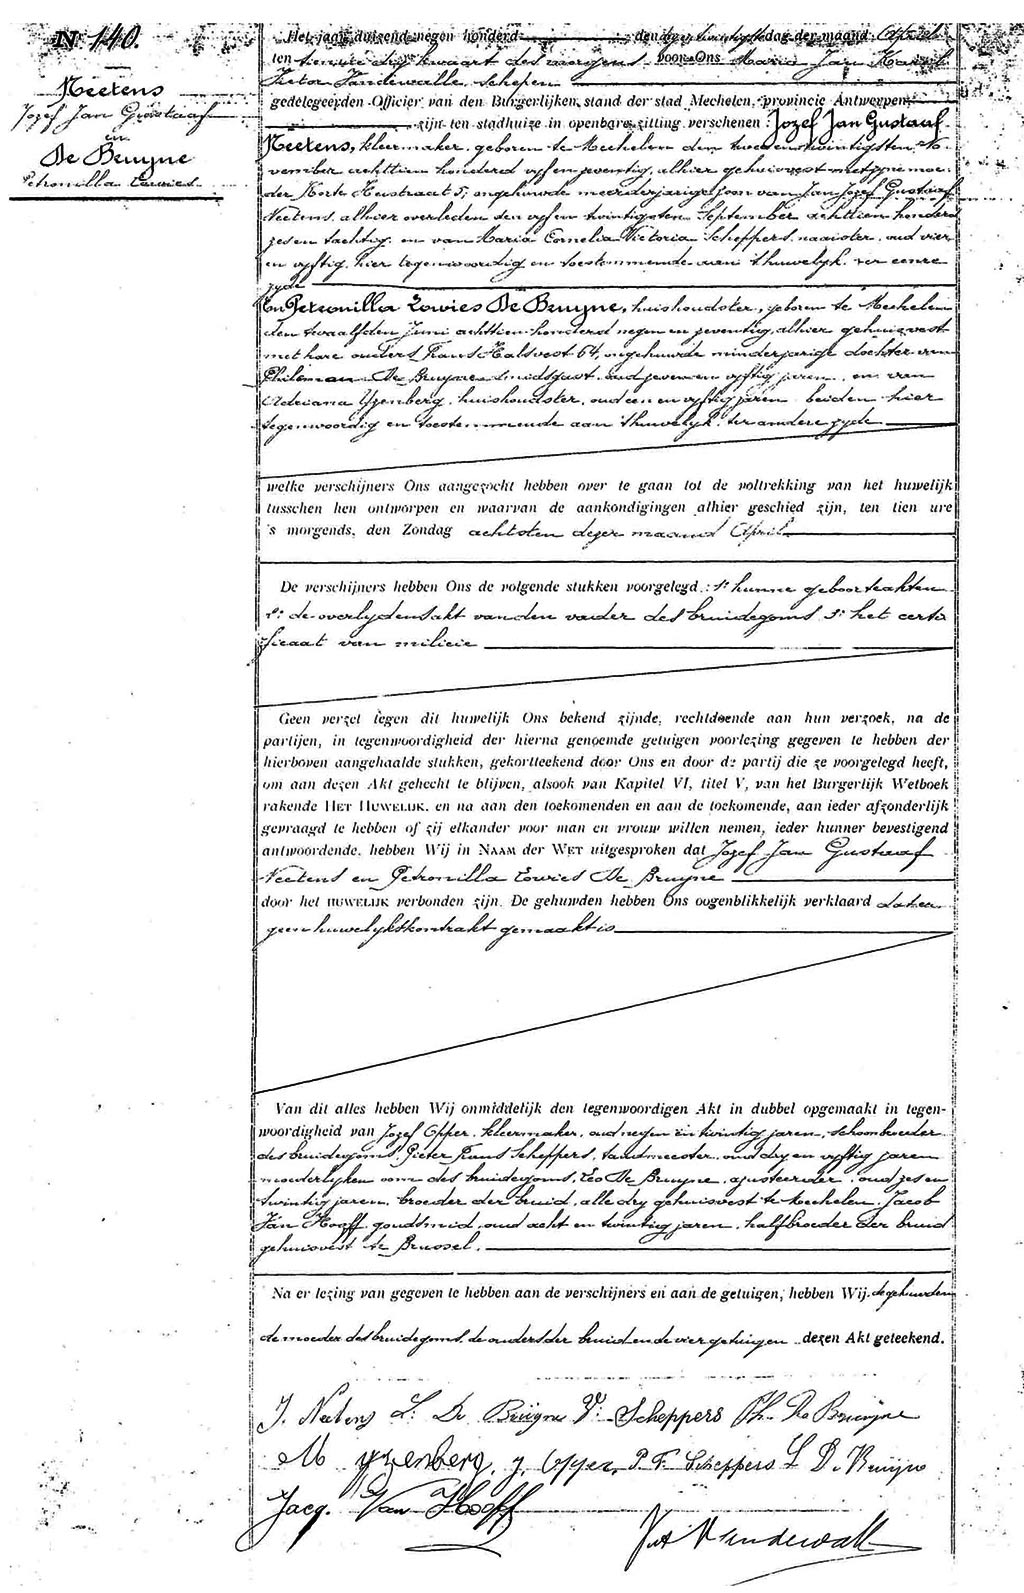 N 140.
Neetens
Jozef Jan Gustaaf
en
De Bruyne
Petronilla Lowies
Het jaar duizend negen honderd den dag der maand April
ten tien ure dry kwaart des morgens voor Ons Maria Jan Karel
Victor Vandewalle, Schepen
gedelegeerden Officier van den Burgerlijken stand der stad Mechelen, provincie Antwerpen,
zijn ten stadhuize in openbare zitting verschenen: Jozef Jan Gustaaf
Neetens, kleermaker, geboren te Mechelen den twee en twintigsten No-
vember achttien honderd vyf en zeventig, alhier gehuisvest met zyne moe-
der Korte Heistraat 5, ongehuwde meerderjarige zoon van Jan Jozef Gustaaf
Neetens, alhier overleden den vyf en twintigsten September achttien honderd
zes en tachtig, en van Maria Cornelia Victoria Scheppers, naaister, oud vier
en vyftig, hier tegenwoordig en toestemmende aan 't huwelyk ter eenre
zyde
En Petronilla Lowies De Bruyne, huishoudster, geboren te Mechelen
den twaalfden Juni achttien honderd negen en zeventig, alhier gehuisvest
met hare ouders Frans Halsvest 64, ongehuwde minderjarige dochter van
Philemon De Bruyne, smidsgast, oud zeven en vyftig jaren, en van
Adriana Yzenberg, huishoudster, oud een en vyftig jaren beiden hier
tegenwoordig en toestemmende aan 't huwelyk ter andere zyde
welke verschijners Ons aangezocht hebben over te gaan tot de voltrekking van het huwelijk
tusschen hen ontworpen en waarvan de aankondigingen alhier geschied zijn, ten tien ure
's morgends, den Zondag achtsten dezer maand April
De verschijners hebben Ons de volgende stukken voorgelegd: 1° hunne geboorteakten
2° de overlydensakt van den vader des bruidegoms 3° het certi-
ficaat van milicie
Geen verzet tegen dit huwelijk Ons bekend zijnde, rechtdoende aan hun verzoek, na de
partijen, in tegenwoordigheid der hierna genoemde getuigen voorlezing gegeven te hebben der
hierboven aangehaalde stukken, gekortteekend door Ons en door de partij die ze voorgelegd heeft,
om aan dezen Akt gehecht te blijven, alsook van Kapitel VI, titel V, van het Burgerlijk Wetboek
rakende HET HUWELIJK, en na aan den toekomenden en aan de toekomende, aan ieder afzonderlijk
gevraagd te hebben of zij elkander voor man en vrouw willen nemen, ieder hunner bevestigend
antwoordende, hebben Wij in NAAM der WET uitgesproken dat Jozef Jan Gustaaf
Neetens en Petronilla Lowies De Bruyne
door het HUWELIJK verbonden zijn. De gehuwden hebben Ons oogenblikkelijk verklaard dat er
geen huwelykskontrakt gemaakt is
Van dit alles hebben Wij onmiddelijk den tegenwoordigen Akt in dubbel opgemaakt in tegen-
woordigheid van Jozef Opper, kleermaker, oud negen en twintig jaren, schoonbroeder
des bruidegoms, Pieter Frans Scheppers, tandmeester, oud dry en vyftig jaren
moederlyken oom des bruidegoms, Leo De Bruyne, ajusteerder, oud zes en
twintig jaren, broeder der bruid, alle dry gehuisvest te Mechelen, Jacob
Van Hooff, goudsmid, oud acht en twintig jaren, halfbroeder der bruid
gehuisvest te Brussel.
Na er lezing van gegeven te hebben aan de verschijners en aan de getuigen, hebben Wij, de gehuwden
de moeder des bruidegoms, de ouders der bruid en de vier getuigen dezen Akt geteekend.
J. Neetens L. De Bruyne V. Scheppers Ph. De Bruyne
M Yzenberg, J. Opper, P. F. Scheppers L De Bruyne
Jacq. Van Hooff
Vandewalle